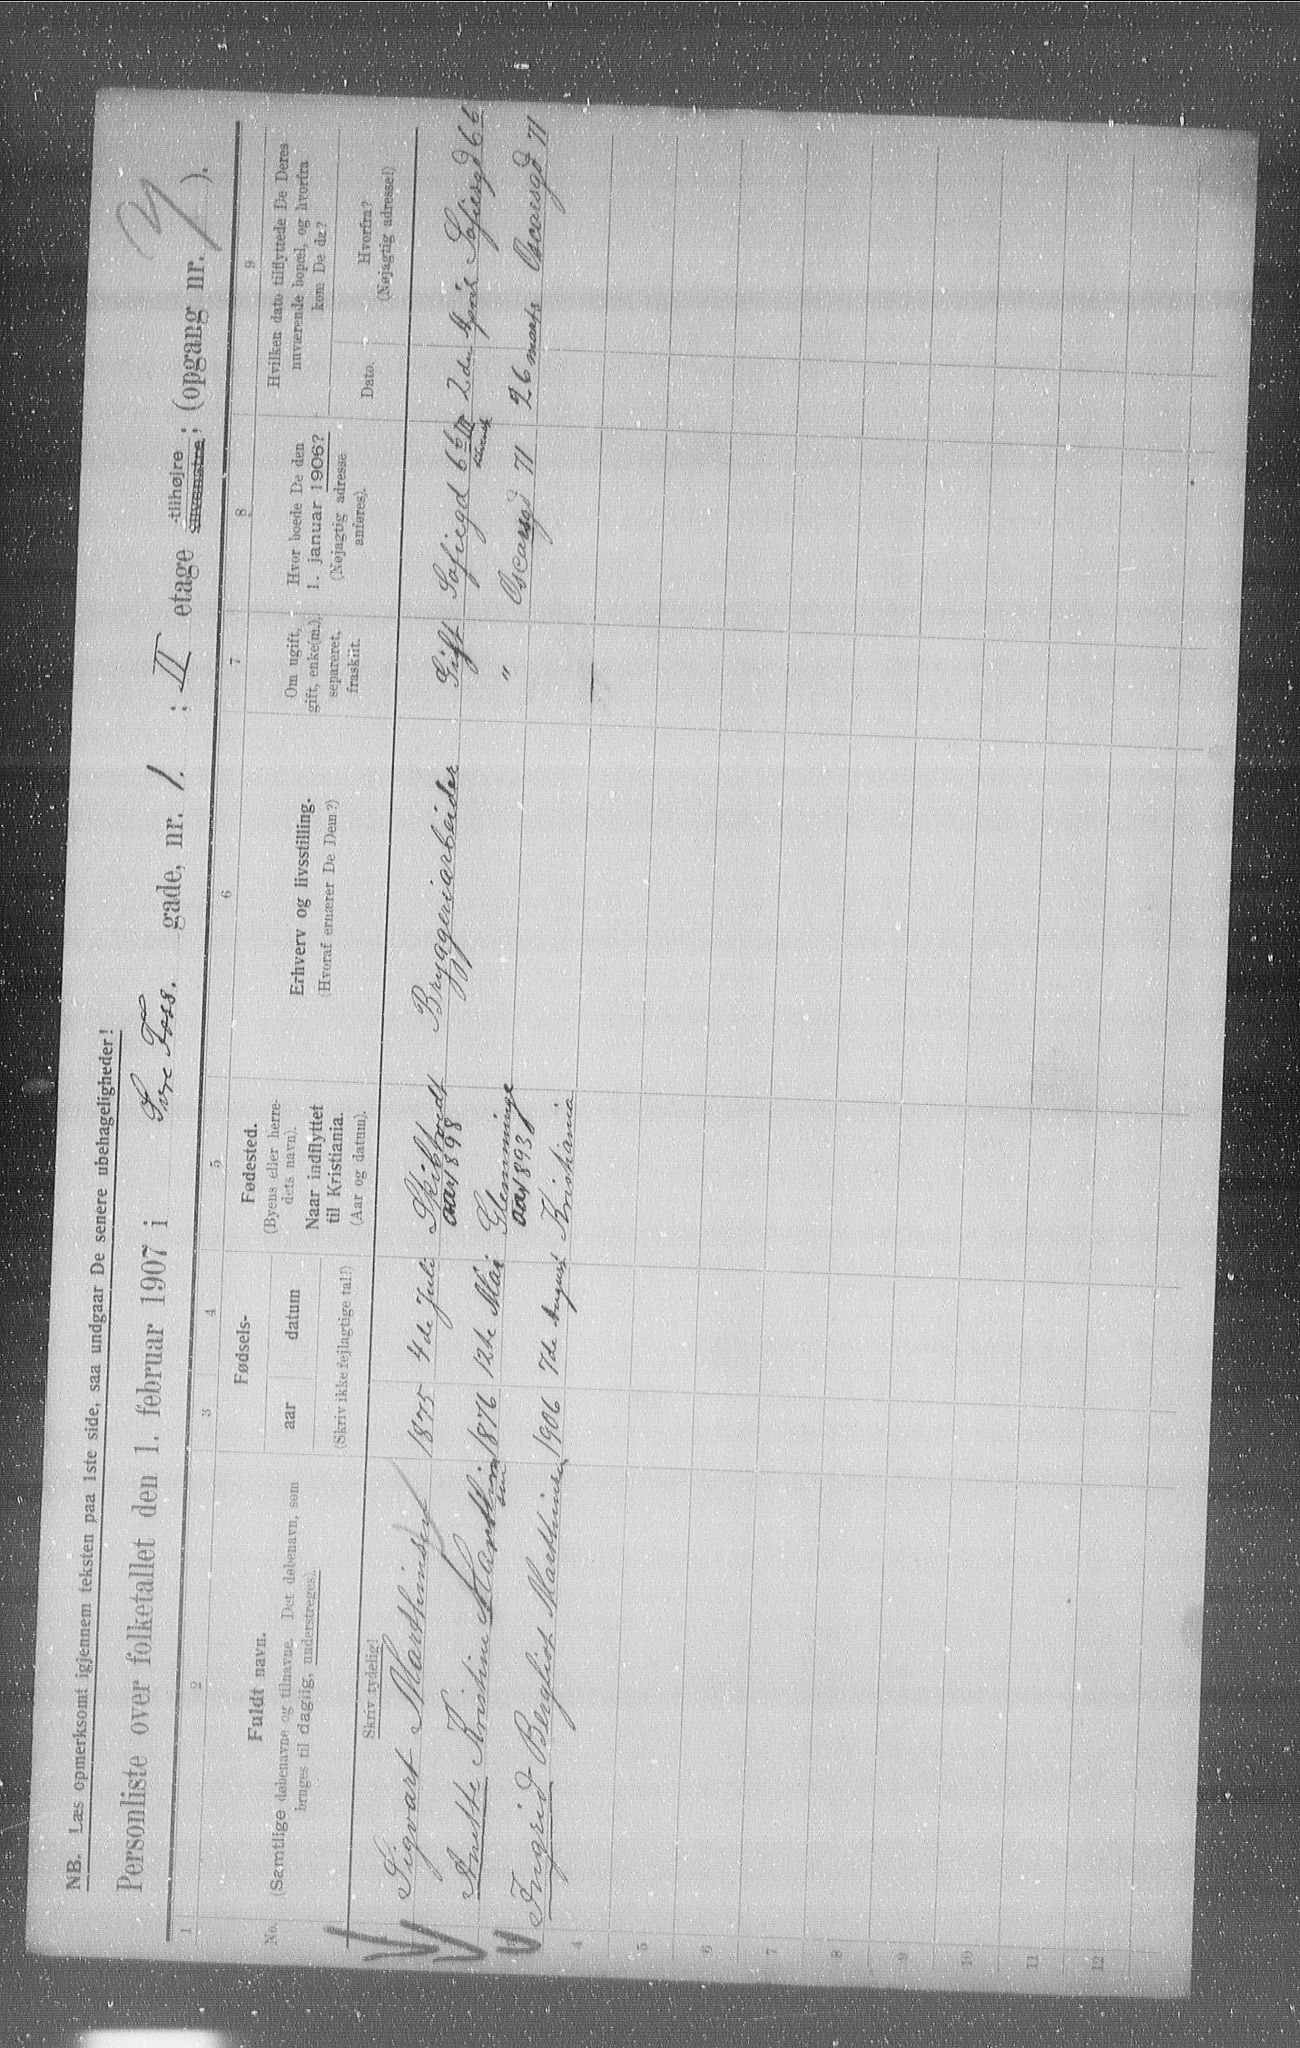 NB. Læs opmerksomt igjennem teksten paa 1ste side, saa undgaar De senere ubehageligheder!
Personliste over folketallet den 1. februar 1907 i Svre Foss. gade, nr. 1. ; II etage tilhøjre tilvenstre ; (opgang nr. ).
1 2 3 4 5 6 7 8 9
No.
Fuldt navn.
(Samtlige døbenavne og tilnavne. Det døbenavn, som
bruges til daglig, understreges).
Skriv tydelig!
Fødsels-
aar datum
(Skriv ikke fejlagtige tal!)
Fødested.
(Byens eller herre-
dets navn).
Naar indflyttet
til Kristiania.
(Aar og datum).
Erhverv og livsstilling.
(Hvoraf ernærer De Dem?)
Om ugift,
gift, enke(m.),
separeret,
fraskilt.
Hvor boede De den
1. januar 1906?
(Nøjagtig adresse
anføres).
Hvilken dato tilflyttede De Deres
nuværende bopæl, og hvorfra
kom De da?
Dato.
Hvorfra?
(Nøjagtig adresse!)
Sigvart Marthinsen 1875 4de Juli aar 1898 Bryggeriarbeider Gift Sofiegd 66 III 2den April Sofiesgd 66
Anette Kristine Marthinsen 1876 12te Mai Glemminge aar 1893 " Oscarsgd 71 26 marts Oscarsgd 71
Ingrid Bergliot Marthinsen 1906 7de August Kristiania
4
5
6
7
8
9
10
11
12